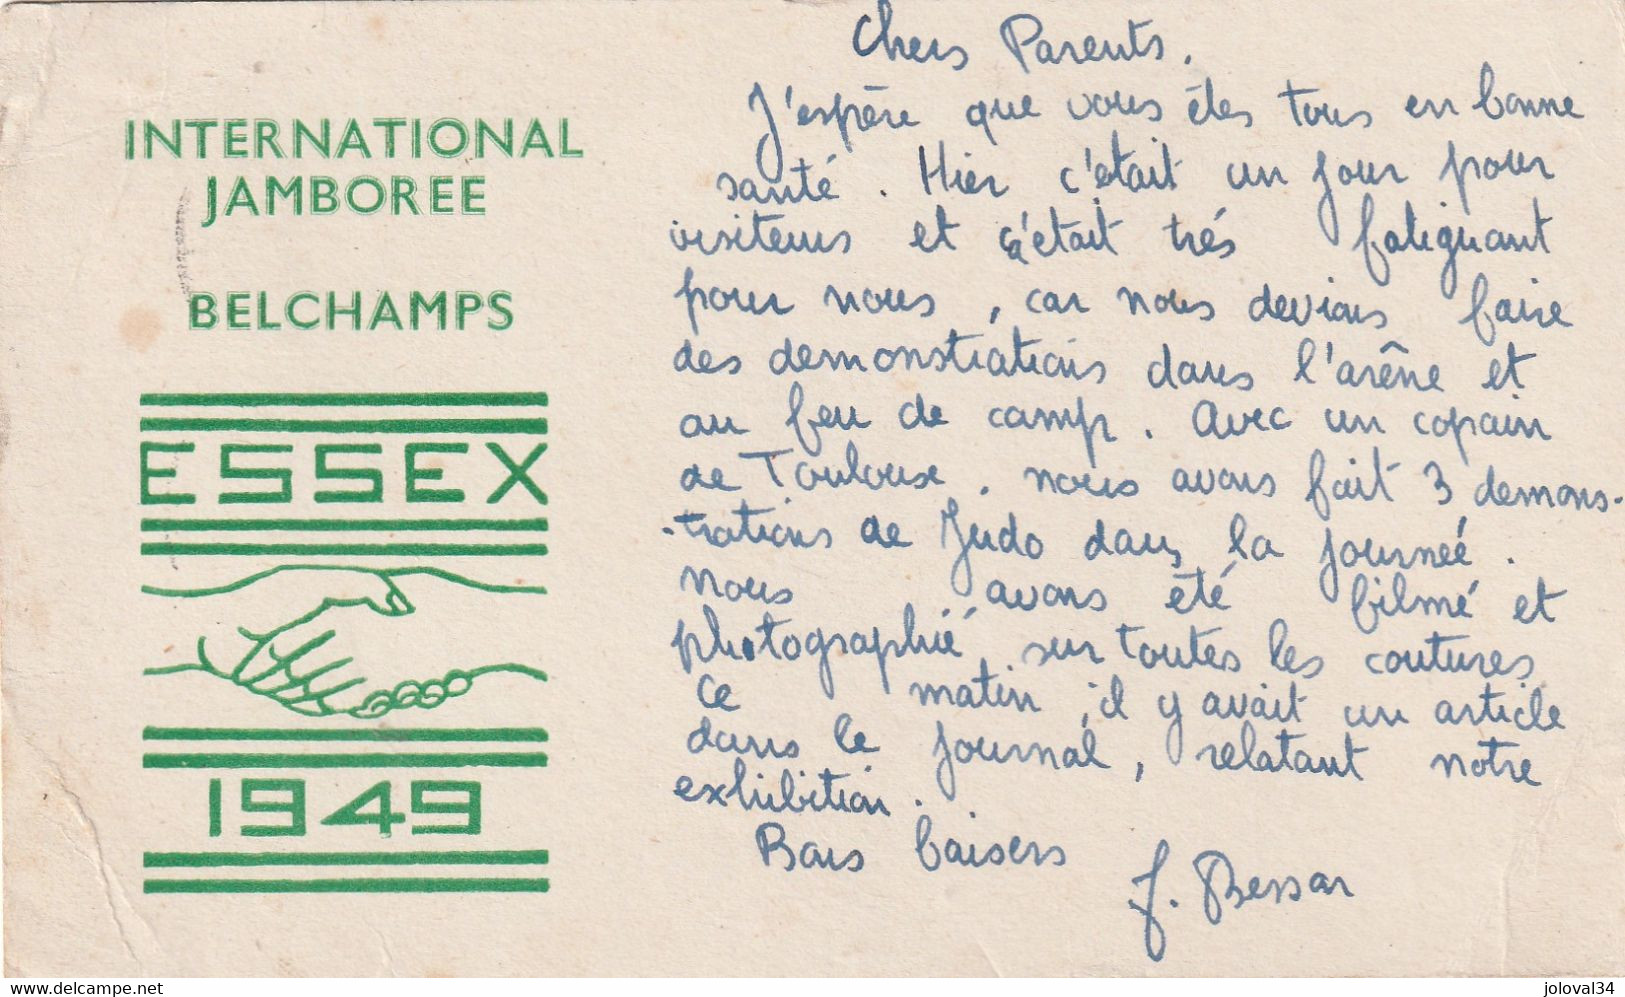 INTERNATIONAL
JAMBOREE
BELCHAMPS
ESSEX
1949
Chers Parents.
J'espère que vous êtes tous en bonne
santé. Hier c'était un jour pour
visiteurs et c'était trés fatiguant
pour nous, car nous devions faire
des demonstrations dans l'arêne et
au feu de camp. Avec un copain
de Toulouse, nous avons fait 3 demons-
-trations de Judo dans la journeé.
Nous avons été filmé et
photographié sur toutes les coutures
Ce matin, il y avait un article
dans le journal, relatant notre
exhibition.
Bons baisers
J. Bessar
www.delcampe.net
joloval34